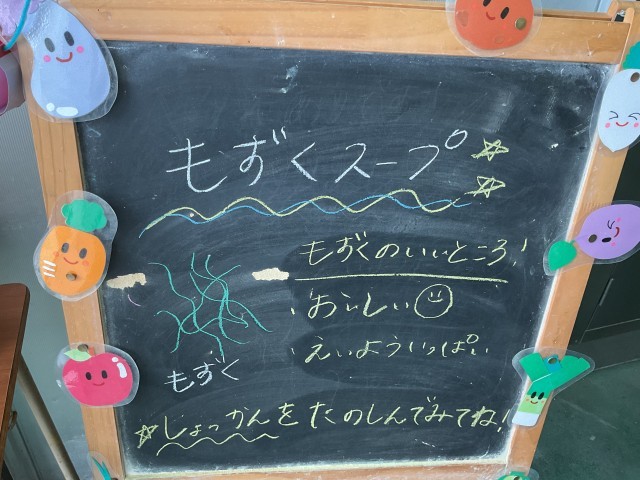 もずくスープ
もずくのいいところ!
・おいしい
・えいよういっぱい
もずく
しょっかんをたのしんでみてね!